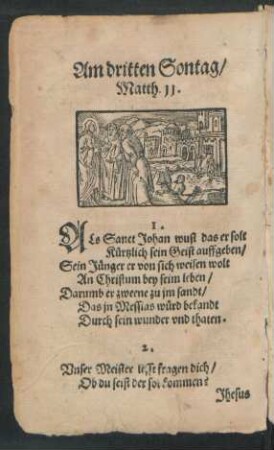 Am dritten Sontag/
Matth. 11.
1.
ALs Sanct Johan wust das er solt
Kürtzlich sein Geist auffgeben/
Sein Jünger er von sich weisen wolt
An Christum bey seim leben/
Darumb er zweene zu jm sandt/
Das jn Messias würd bekandt
Durch sein wunder vnd thaten.
2.
Vnser Meister lesst fragen dich/
Ob du seist der sol kommen?
Jhesus